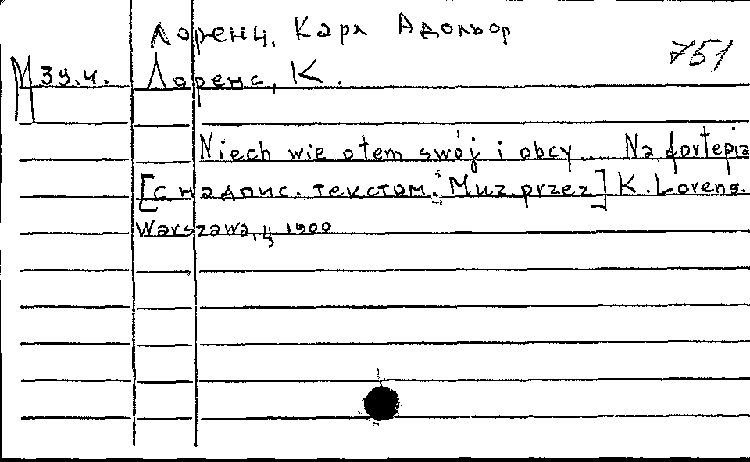 Лоренц, Карл Адольф
751
М 39.4. Лоренс, К.
Niech wie o tem swój i obcy... Na fortepia
[с надпис. текстом: Muz. przez] K. Lorens.
Warszawa, 1900